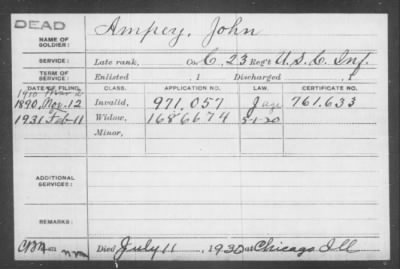 DEAD
NAME OF SOLDIER: Ampey, John
SERVICE: Late rank, Co. C, 23 Reg't U.S.C. Inf.
TERM OF SERVICE: Enlisted , 1 Discharged , 1
DATE OF FILING. CLASS. APPLICATION NO. LAW. CERTIFICATE NO.
1910 Mar 2
1890, Nov. 12 Invalid, 971,057 761,633
1931 Feb 11 Widow, 1686674 5-1-20
Minor,
ADDITIONAL SERVICES:
REMARKS:
Died July 11, 1930 at Chicago Ill